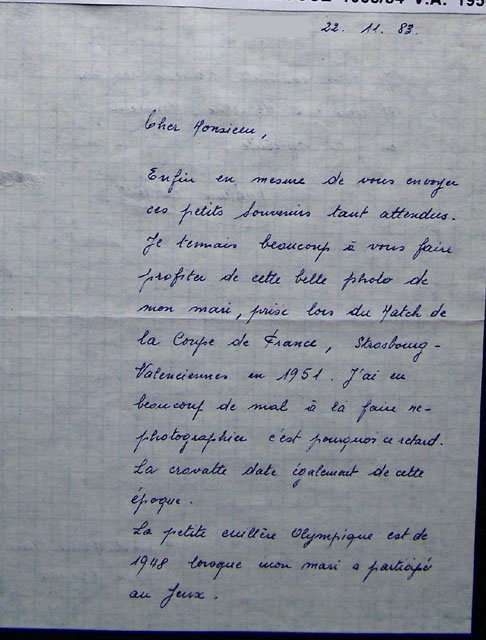 V.A. 195
22. 11. 83.
Cher Monsieur,
Enfin en mesure de vous envoyer
ces petits souvenirs tant attendus.
Je tenais beaucoup à vous faire
profiter de cette belle photo de
mon mari, prise lors du Match de
la Coupe de France, Strasbourg-
Valenciennes en 1951. J'ai eu
beaucoup de mal à la faire re-
photographier c'est pourquoi ce retard.
La cravatte date également de cette
époque.
La petite cuillère Olympique est de
1948 lorsque mon mari a participé
au Jeux.